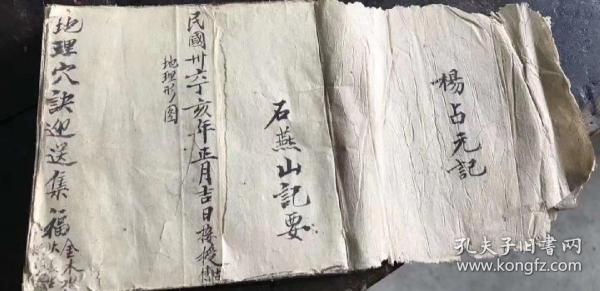 楊占元記
石燕山記要
民國卅六丁亥年正月吉日接授
地理形图
地理穴訣迎送集福
金木水
火
孔夫子旧书网
www.kongfz.com